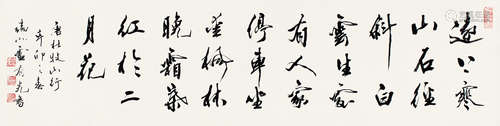 遠上寒
山石徑
斜白
雲生處
有人家
停車坐
愛楓林
晚霜葉
紅於二
月花
唐杜牧山行
辛卯之春
盧有光書